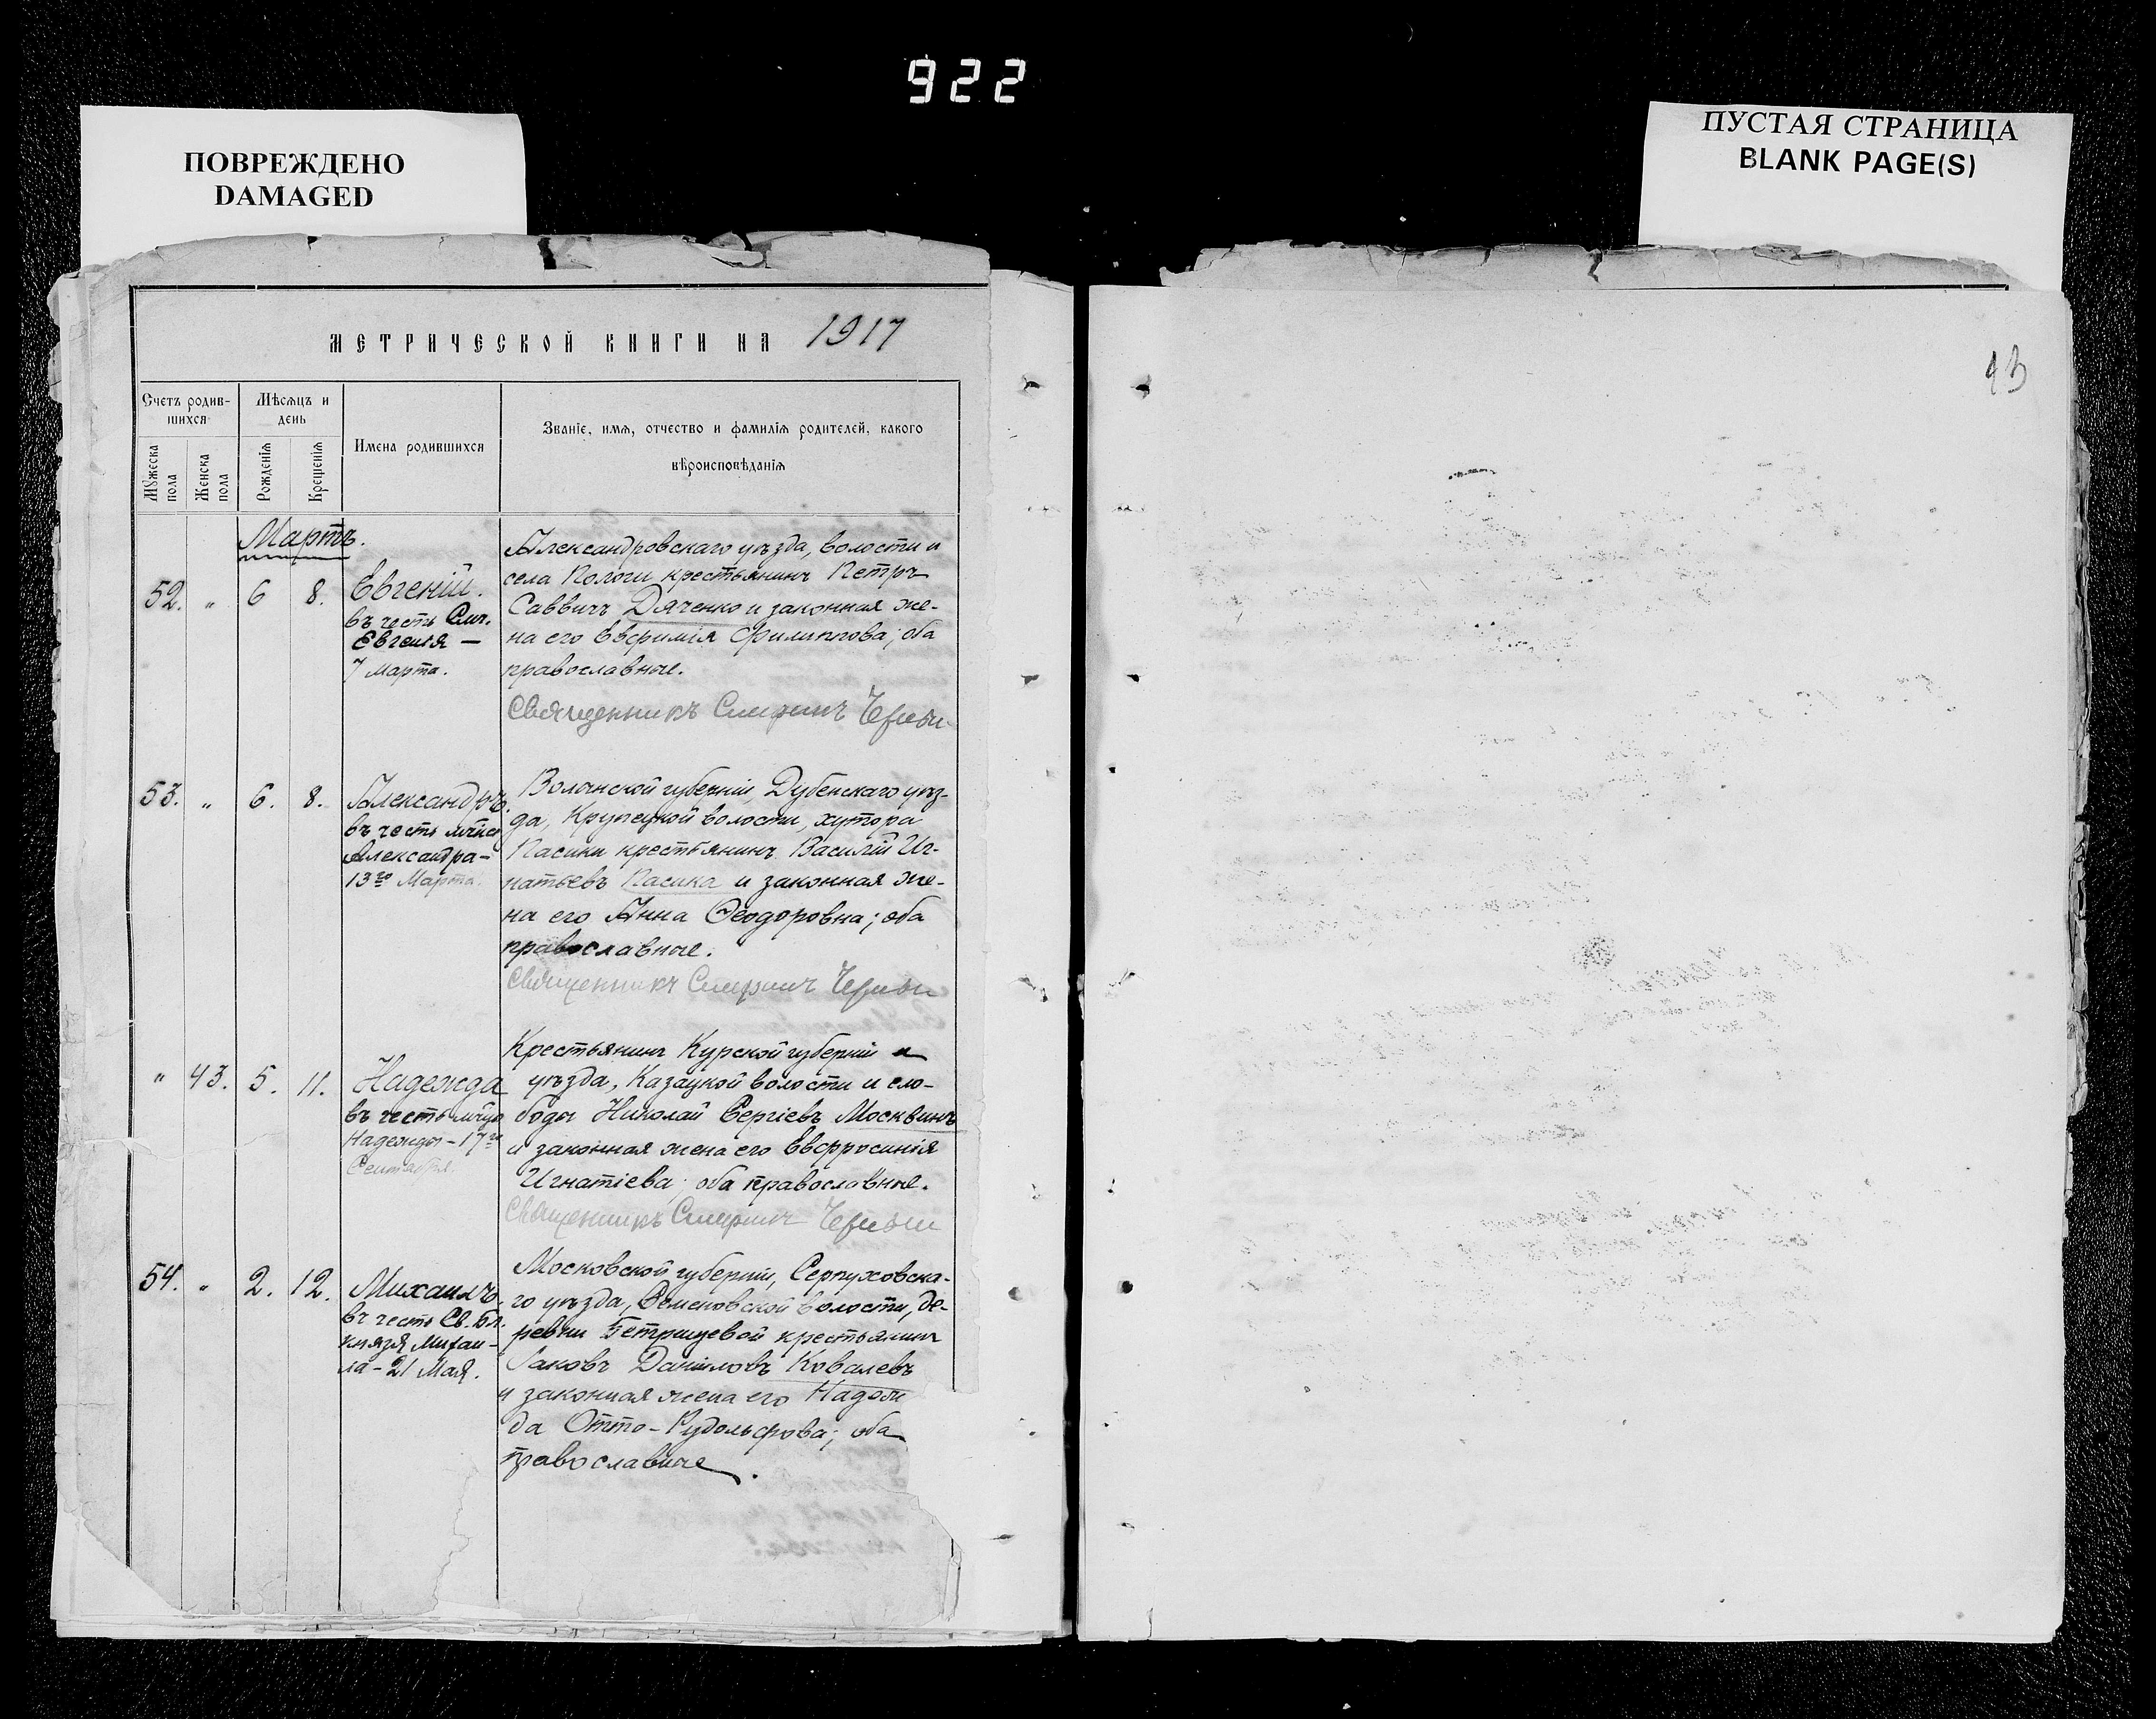 922
ПОВРЕЖДЕНО
DAMAGED
ПУСТАЯ СТРАНИЦА
BLANK PAGE(S)
МЕТРИЧЕСКОЙ КНИГИ НА 1917
Счетъ родив-
шихся
Мужеска
пола
Женска
пола
Мѣсяцъ и
день
Рожденія
Крещенія
Имена родившихся
Званіе, имя, отчество и фамилія родителей, какого
вѣроисповѣданія
Мартъ.
52. " 6 8.
Евгеній.
въ честь
Евгенія —
7 Марта.
Александровскаго уѣзда, волости и
села Пологи крестьянинъ Петръ
Саввичъ Дяченко и законная же-
на его Евфимія Филиппова; оба
православные.
Священникъ
53. " 6. 8.
Александръ.
въ честь
Александра-
13го Марта.
Волынской губерніи, Дубенскаго уѣз-
да, Крупецкой волости, хутора
Пасики крестьянинъ Василій Иг-
натьевъ Пасика и законная же-
на его Анна Ѳеодоровна; оба
православные.
Священникъ
" 43. 5. 11.
Надежда
въ честь мчцы
Надежды - 17го
Сентября.
Крестьянинъ Курской губерніи и
уѣзда, Казацкой волости и сло-
боды Николай Сергіевъ Москвинъ
и законная жена его Евфросинія
Игнатіева; оба православные.
Священникъ
54. " 2. 12.
Михаилъ.
въ честь Св. Бл.
князя Михаи-
ла - 21 Мая.
Московской губерніи, Серпуховска-
го уѣзда, Семеновской волости, де-
ревни Петрищевой крестьянинъ
Іаковъ Даніиловъ Ковалевъ
и законная жена его Надеж
да Отто-Рудольфова; оба
православные.